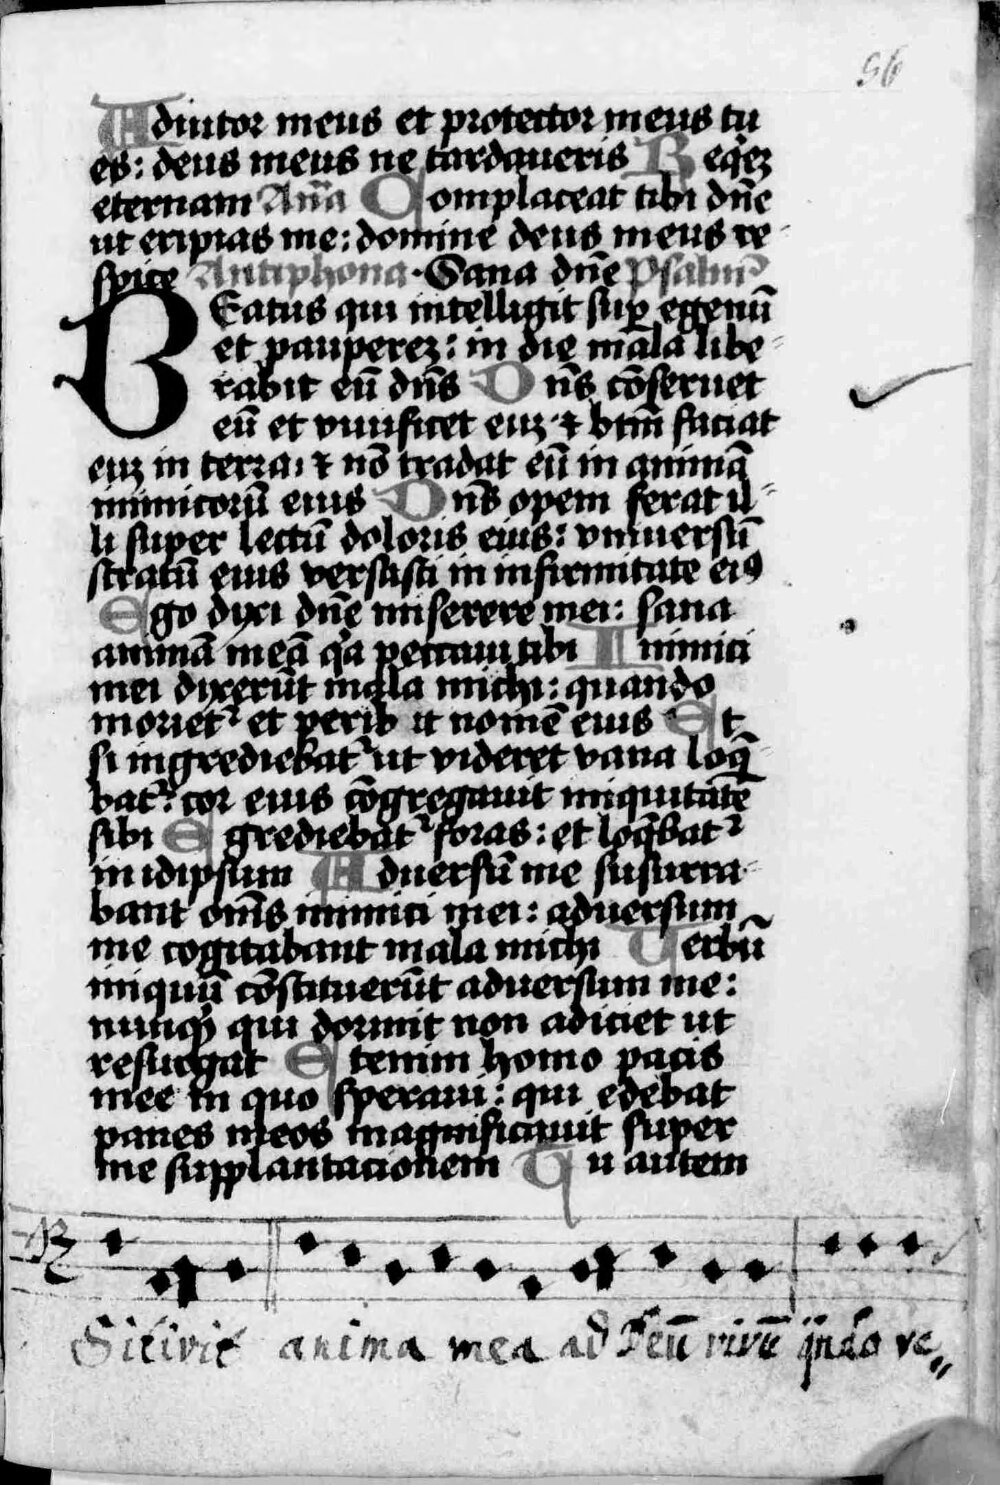 56
Adiutor meus et protector meus tu
es: deus meus ne tardaueris Requiē
eternam Añã Complaceat tibi dñe
ut eripias me: domine deus meus re-
spice Antiphona. Sana dñe Psalm9
BEatus qui intelligit sup egenū
et pauperez: in die mala libe-
rabit eū dñs Dñs cōseruet
eū et viuificet euz ⁊ btm̄ faciat
euz in terra: ⁊ nō tradat eū in animā
inimicorū eius Dñs opem ferat il-
li super lectū doloris eius: vniuersū
stratū eius versasti in infirmitate ei9
Ego dixi dñe miserere mei: sana
animā meā qa peccaui tibi Inimici
mei dixerūt mala michi: quando
moriet᷑ et perib it nomē eius Et
si ingrediebat᷑ ut videret vana loq̄-
bat᷑: cor eius cōgregauit iniquitatē
sibi Egrediebat᷑ foras: et loq̄bat᷑
in idipsum Aduersū me susurra-
bant om̄s inimici mei: aduersum
me cogitabant mala michi Verbū
iniquū cōstituerūt aduersum me:
nunqꝫ qui dormit non adiciet ut
resurgat Etenim homo pacis
mee in quo speraui: qui edebat
panes meos magnificauit super
me supplantacionem Tu autem
℟
Sitivit anima mea ad Deū vivū qn̄do ve„